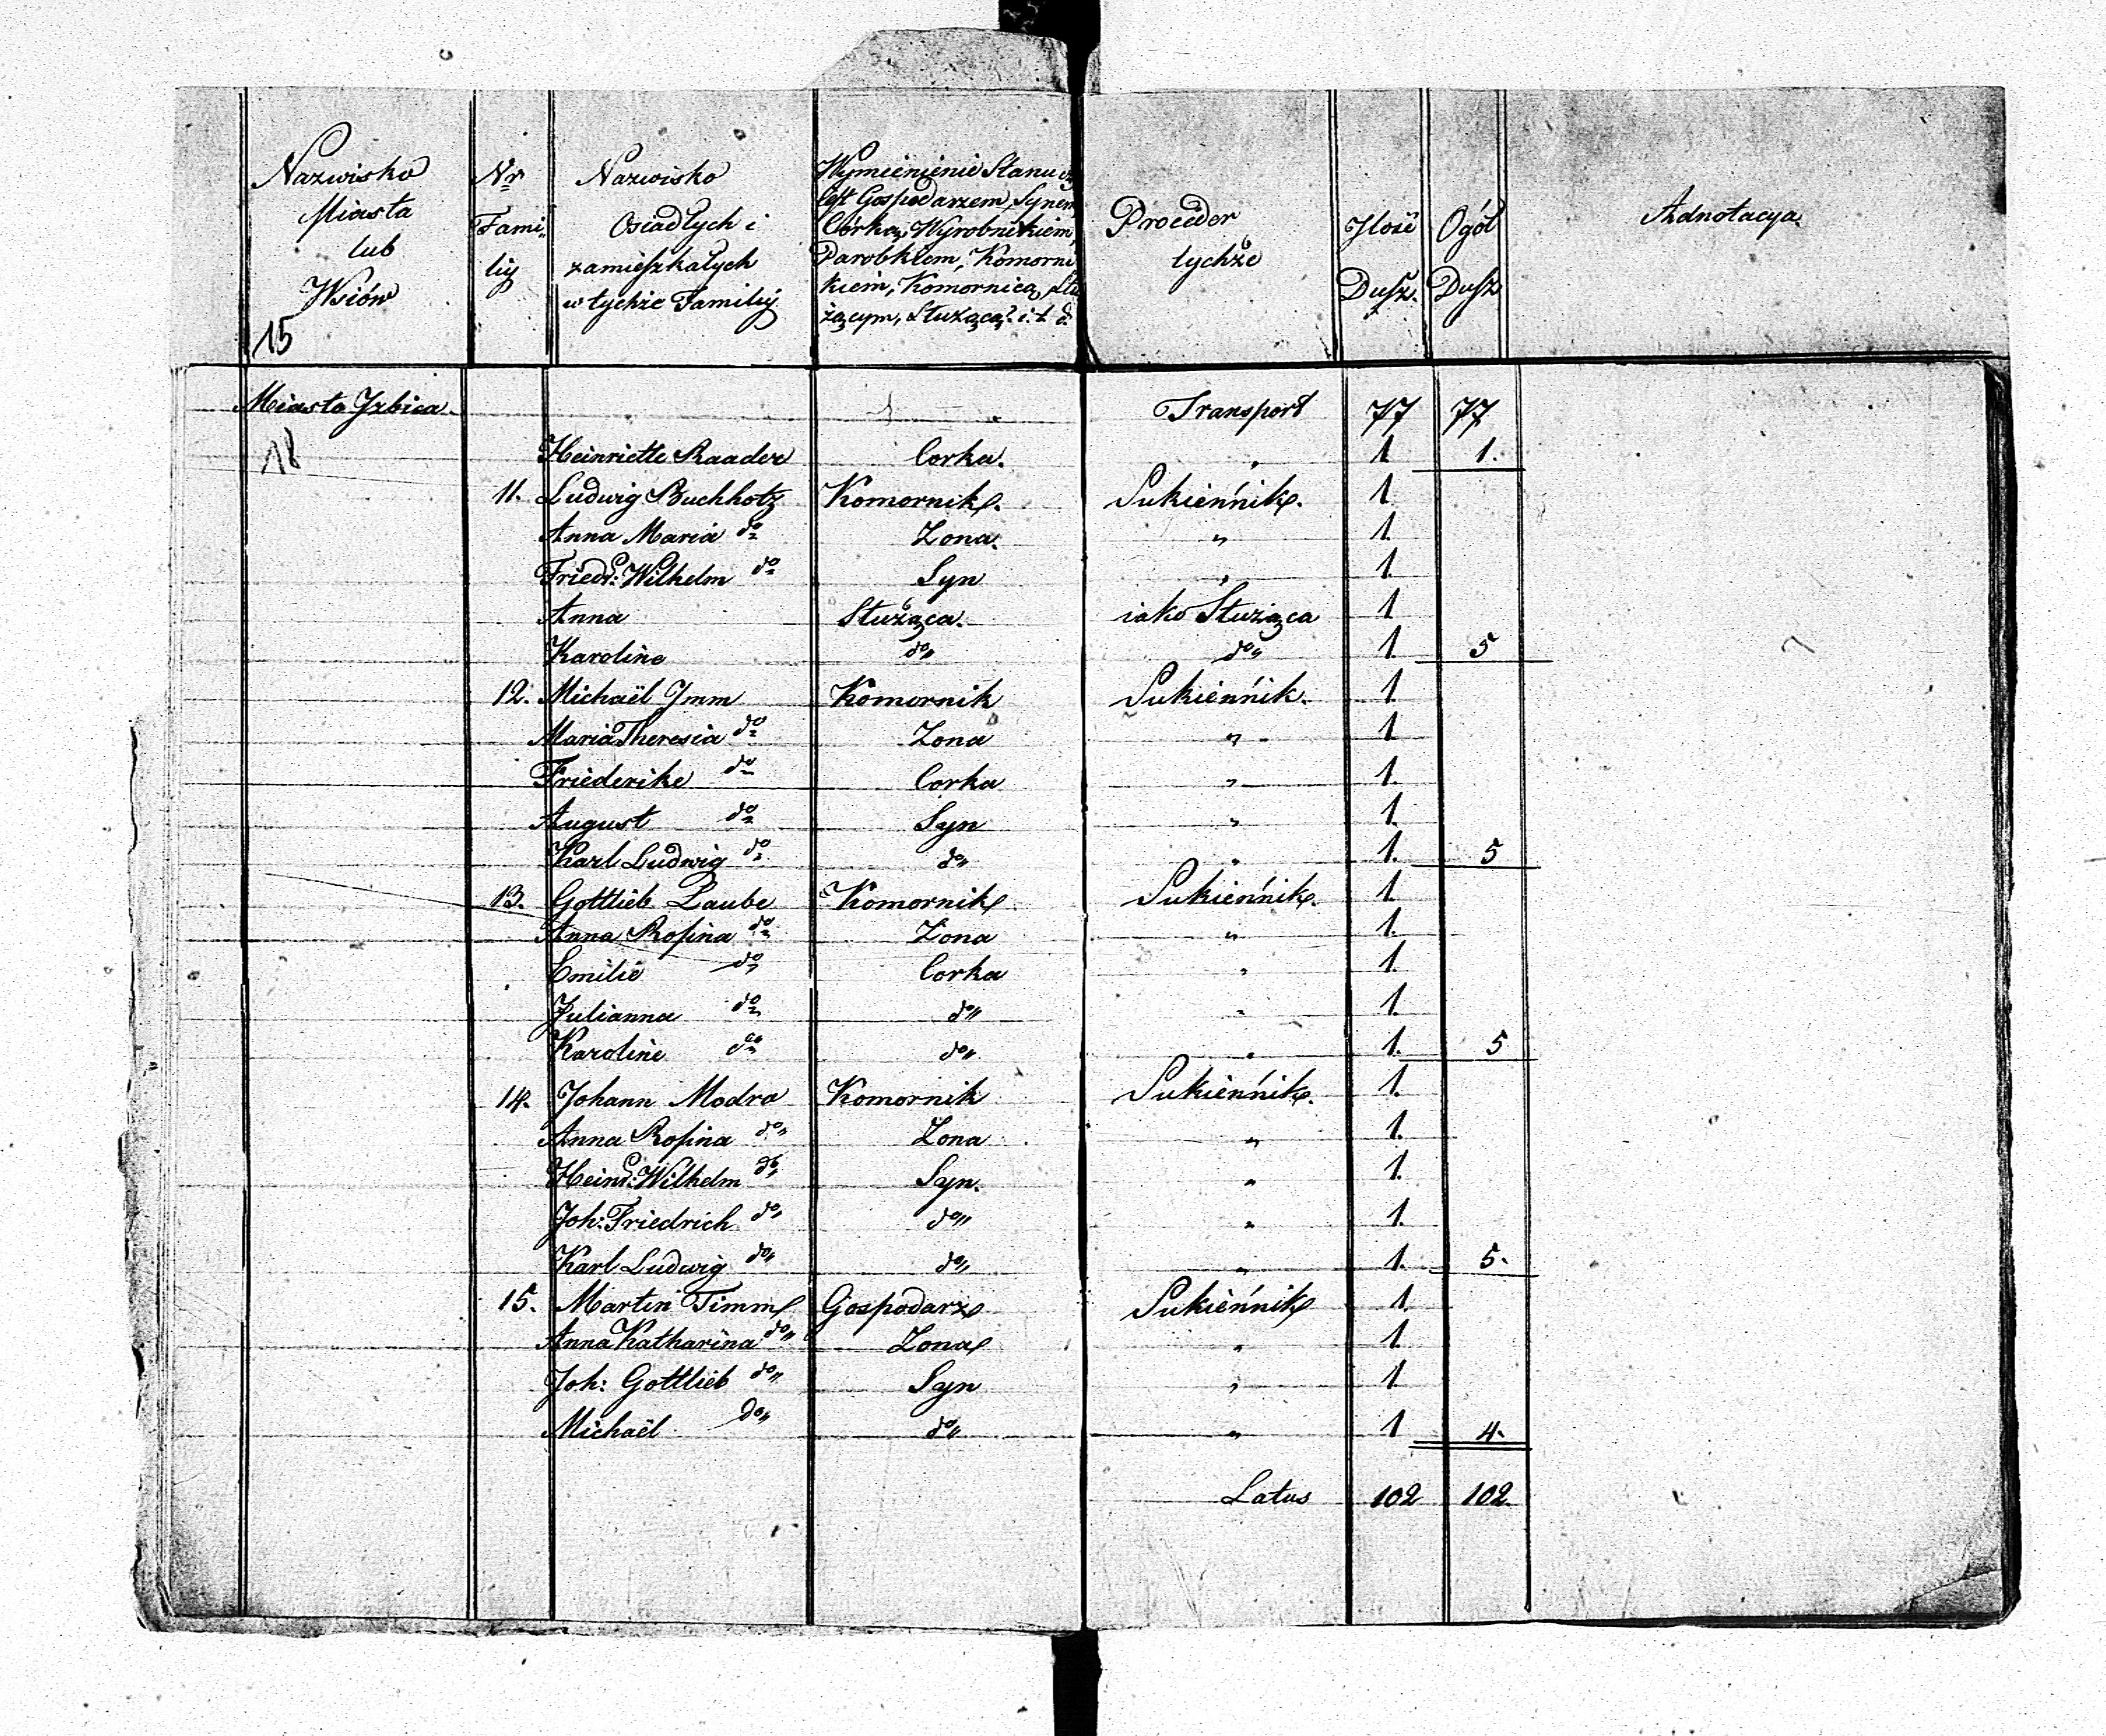 Nazwisko Miasta lub Wsiów
Nr Fami- liy
Nazwisko Osiadłych i zamieszkałych w tychże Familiy
Wymienienie Stanu
Jest Gospodarzem, Synem,
Córką, Wyrobnikiem,
Parobkiem, Komorni
kiem, Komornicą, Słu
żącym, Służącą? i.t.d.
Proceder tychże
Ilość Dusz.
Ogół Dusz
Adnotacya.
15
Miasto Izbica Transport 77 77
18
Heinriette Raader Corka. " 1 1.
11. Ludwig Buchholtz Komornik. Sukiennik. 1
Anna Maria do Zona. " 1.
Friedr: Wilhelm do Syn " 1.
Anna Służąca. iako Służąca 1
Karoline do" do" 1. 5
12. Michaël Imm Komornik Sukiennik. 1
Maria Theresia do Zona " 1
Friederike do Corka " 1.
August do Syn " 1.
Karl Ludwig do do" " 1. 5
13. Gottlieb Laube Komornik Sukiennik. 1.
Anna Rosina do Zona " 1.
Emilie do Corka " 1.
Julianna do do" " 1.
Karoline do do" " 1. 5
14. Johann Modro Komornik Sukiennik. 1.
Anna Rosina do" Zona " 1.
Heinr: Wilhelm do Syn. " 1.
Joh: Friedrich do" do" " 1.
Karl Ludwig do" do" " 1. 5.
15. Martin Timm Gospodarz Sukiennik 1.
Anna Katharina do" Zona " 1.
Joh: Gottlieb do" Syn " 1
Michaël do" do" " 1 4.
Latus 102 102